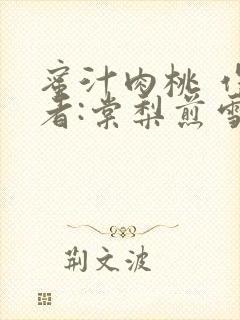 蜜汁肉桃 作
者:棠梨煎雪
荆文波